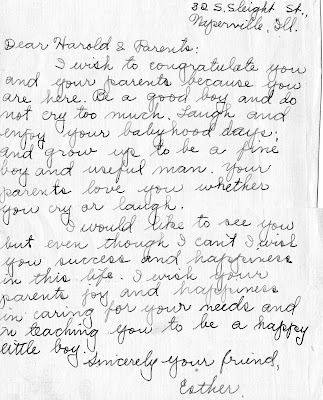 32 S. Sleight St.,
Naperville, Ill.
Dear Harold & Parents:
I wish to congratulate you
and your parents because you
are here. Be a good boy and do
not cry too much. Laugh and
enjoy your babyhood days;
and grow up to be a fine
boy and useful man. Your
parents love you whether
you cry or laugh.
I would like to see you
but even though I can't I wish
you success and happiness
in this life. I wish your
parents joy and happiness
in caring for your needs and
in teaching you to be a happy
little boy.
Sincerely your friend,
Esther.